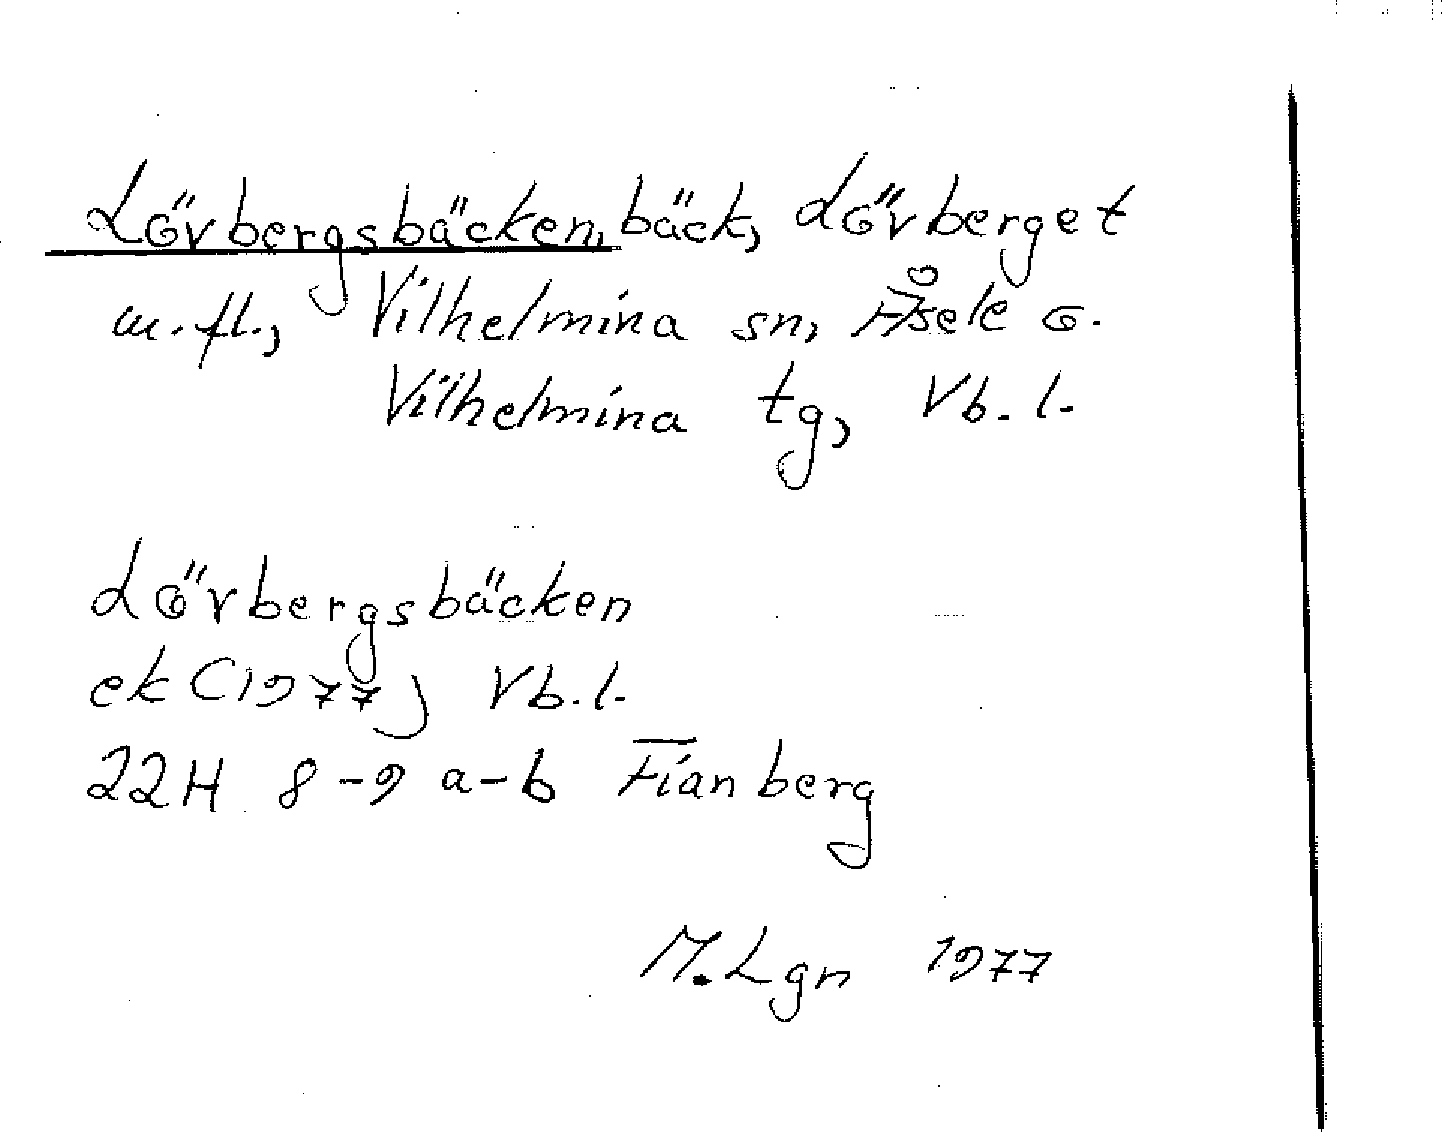 Lövbergsbäcken, bäck, Lövberget
m.fl., Vilhelmina sn, Åsele o.
Vilhelmina tg, Vb. l.
Lövbergsbäcken
ek (1977) Vb. l.
22H 8-9 a-b Fianberg
M. Lgn 1977